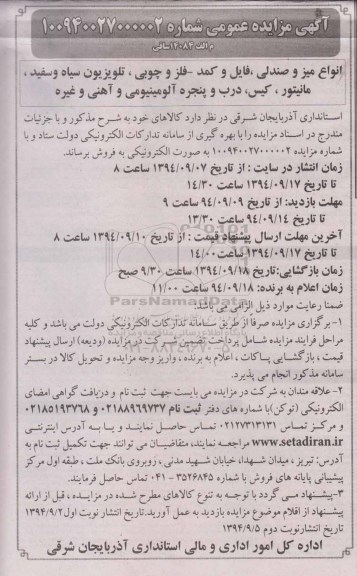 آگهی مزایده عمومی شماره ۱۰۰۹۴۰۰۲۷۰۰۰۰۰۲
م الف ۱۲۰۸۳ساقی
انواع میز و صندلی ،فایل و کمد -فلز و چوبی ، تلویزیون سیاه وسفید ،
مانیتور ، کیس، درب و پنجره آلومینیومی و آهنی و غیره
استانداری آذربایجان شرقی در نظر دارد کالاهای خود به شرح مذکور و با جزئیات
مندرج در اسناد مزایده را با بهره گیری از سامانه تدارکات الکترونیکی دولت ستاد و با
شماره مزایده ۱۰۰۹۴۰۰۲۷۰۰۰۰۰۲ به صورت الکترونیکی به فروش برساند.
زمان انتشار در سایت : از تاریخ ۱۳۹۴/۰۹/۰۷ ساعت ۸
تا تاریخ ۱۳۹۴/۰۹/۱۷ ساعت ۱۴/۳۰
مهلت بازدید: از تاریخ ۹۴/۰۹/۰۹ ساعت ۹
تا تاریخ ۹۴/۰۹/۱۴ ساعت ۱۳/۳۰
آخرین مهلت ارسال پیشنهاد قیمت : از تاریخ ۱۳۹۴/۰۹/۱۰ ساعت ۸
تا تاریخ ۱۳۹۴/۰۹/۱۷ ساعت ۱۴/۰۰
زمان بازگشایی:تاریخ ۱۳۹۴/۰۹/۱۸ ساعت ۹/۳۰ صبح
زمان اعلام به برنده: ۹۴/۰۹/۱۸ ساعت ۱۱/۰۰
ضمنا رعایت موارد ذیل الزامی می باشد.
۱-برگزاری مزایده صرفا از طریق سامانه تدارکات الکترونیکی دولت می باشد و کلیه
مراحل فرایند مزایده شامل پرداخت تضمین شرکت در مزایده (ودیعه) ارسال پیشنهاد
قیمت ، بازگشایی پاکات ، اعلام به برنده ، واریز وجه مزایده و تحویل کالا در بستر
سامانه مذکور انجام می پذیرد.
۲-علاقه مندان به شرکت در مزایده می بایست جهت ثبت نام و دریافت گواهی امضای
الکترونیکی (توکن)با شماره های دفتر ثبت نام ۰۲۱۸۸۹۶۹۷۳۷ و ۰۲۱۸۵۱۹۳۷۶۸
و مرکز تماس ۰۲۱۲۷۳۱۳۱۳۱ تماس حاصل نمایند و یا به آدرس اینترنتی
www.setadiran.ir مراجعه نمایند، متقاضیان می توانند جهت تکمیل ثبت نام به
آدرس: تبریز ، میدان شهدا، خیابان شهید مدنی ، روبروی بانک ملت ، طبقه اول مرکز
پیشیبانی پایانه های فروش با شماره ۳۵۲۶۸۴۵ - ۰۴۱ تماس حاصل فرمایند.
۳-پیشنهاد می گردد با توجه به تنوع کالاهای مطرح شده در مزایده ، قبل از ارائه
پیشنهاد از اقلام موضوع مزایده بازدید به عمل آورید.تاریخ انتشار نوبت اول ۱۳۹۴/۹/۲
تاریخ انتشارنوبت دوم ۱۳۹۴/۹/۵
اداره کل امور اداری و مالی استانداری آذربایجان شرقی
ParsNamadData